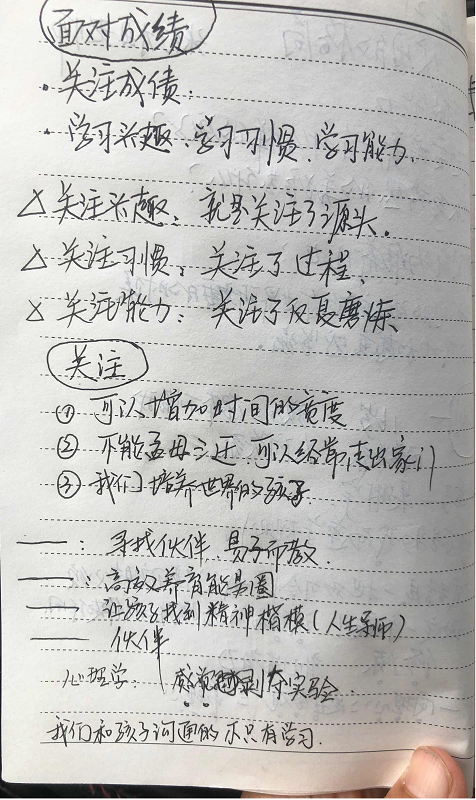 面对成绩
· 关注成绩:
· 学习兴趣、学习习惯、学习能力
△ 关注兴趣: 就是关注了源头.
△ 关注习惯: 关注了过程、
△ 关注能力: 关注了反复磨炼
关注
① 可以增加时间的宽度
② 不能孟母三迁、可以经常走出家门
③ 我们培养世界的孩子
——: 寻找伙伴、易子而教.
——: 高效养育能量圈
—— 让孩子找到精神楷模(人生导师)
—— 伙伴
心理学: 感觉剥夺实验
我们和孩子沟通的不只有学习.